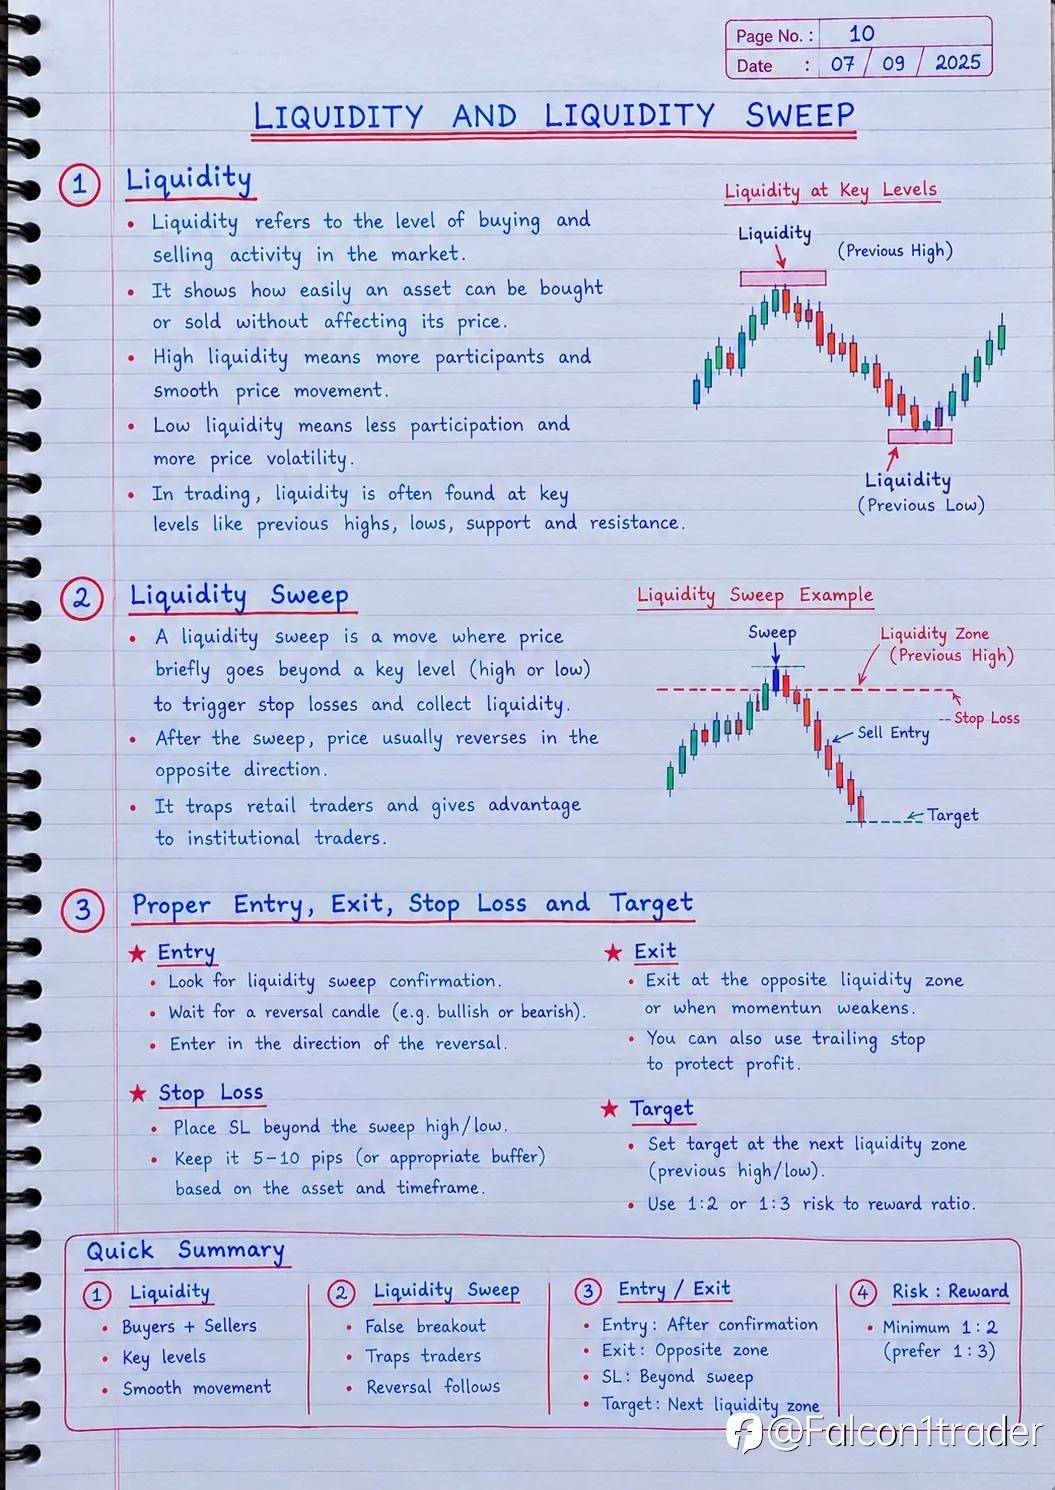 Page No. : 10
Date : 07 / 09 / 2025
LIQUIDITY AND LIQUIDITY SWEEP
1 Liquidity
• Liquidity refers to the level of buying and
selling activity in the market.
• It shows how easily an asset can be bought
or sold without affecting its price.
• High liquidity means more participants and
smooth price movement.
• Low liquidity means less participation and
more price volatility.
• In trading, liquidity is often found at key
levels like previous highs, lows, support and resistance.
Liquidity at Key Levels
Liquidity
(Previous High)
Liquidity
(Previous Low)
2 Liquidity Sweep
• A liquidity sweep is a move where price
briefly goes beyond a key level (high or low)
to trigger stop losses and collect liquidity.
• After the sweep, price usually reverses in the
opposite direction.
• It traps retail traders and gives advantage
to institutional traders.
Liquidity Sweep Example
Sweep
Liquidity Zone
(Previous High)
Stop Loss
Sell Entry
Target
3 Proper Entry, Exit, Stop Loss and Target
★ Entry
• Look for liquidity sweep confirmation.
• Wait for a reversal candle (e.g. bullish or bearish).
• Enter in the direction of the reversal.
★ Stop Loss
• Place SL beyond the sweep high/low.
• Keep it 5-10 pips (or appropriate buffer)
based on the asset and timeframe.
★ Exit
• Exit at the opposite liquidity zone
or when momentun weakens.
• You can also use trailing stop
to protect profit.
★ Target
• Set target at the next liquidity zone
(previous high/low).
• Use 1:2 or 1:3 risk to reward ratio.
Quick Summary
1 Liquidity
• Buyers + Sellers
• Key levels
• Smooth movement
2 Liquidity Sweep
• False breakout
• Traps traders
• Reversal follows
3 Entry / Exit
• Entry: After confirmation
• Exit: Opposite zone
• SL: Beyond sweep
• Target: Next liquidity zone
4 Risk : Reward
• Minimum 1:2
(prefer 1:3)
@Falcon1trader